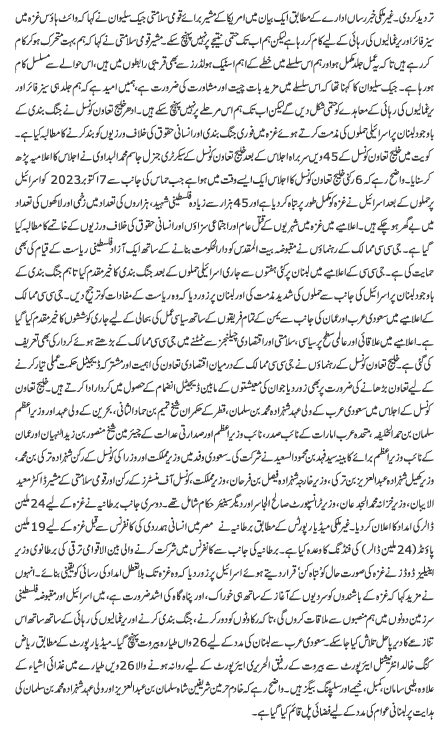 تردید کر دی۔ غیر ملکی خبر رساں ادارے کے مطابق ایک بیان میں امریکا کے مشیر برائے قومی سلامتی جیک سلیوان نے کہا کہ وائٹ ہاؤس غزہ میں
سیز فائر اور یرغمالیوں کی رہائی کے لیے کام کر رہا ہے لیکن ہم اب تک حتمی نتیجے پر نہیں پہنچ سکے۔ مشیر قومی سلامتی نے کہا ہم بہت متحرک ہو کر کام
کر رہے ہیں تاکہ یہ عمل جلد مکمل ہو اور ہم اس سلسلے کے اہم اسٹیک ہولڈرز سے بھی قریبی رابطوں میں ہیں، اس حوالے سے مسلسل کام
ہو رہا ہے۔ جیک سلیوان کا کہنا تھا کہ اس سلسلے میں مزید بات چیت اور مشاورت کی ضرورت ہے، ہمیں امید ہے کہ ہم جلد ہی سیز فائر اور
یرغمالیوں کی رہائی کے معاہدے کو حتمی شکل دیں گے لیکن اب تک ہم اس مرحلے پر نہیں پہنچ سکے ہیں۔ ادھر خلیج تعاون کونسل نے جنگ بندی کے
باوجود لبنان پر اسرائیلی حملوں کی مذمت کرتے ہوئے غزہ میں فوری جنگ بندی اور انسانی حقوق کی خلاف ورزیوں کو بند کرنے کا مطالبہ کیا ہے۔
کویت میں خلیج تعاون کونسل کے 45 ویں سربراہ اجلاس کے بعد خلیج تعاون کونسل کے سیکرٹری جنرل جاسم محمد البداوی نے اجلاس کا اعلامیہ پڑھ
کر سنایا۔ واضح رہے کہ 6 رکنی خلیج تعاون کونسل کا اجلاس ایک ایسے وقت میں ہوا ہے جب حماس کی جانب سے 7 اکتوبر 2023 کو اسرائیل
پر حملوں کے بعد اسرائیل نے غزہ کو مکمل طور پر تباہ کر دیا ہے اور 45 ہزار سے زیادہ فلسطینی شہید، ہزاروں کی تعداد میں زخمی اور لاکھوں کی تعداد
میں بے گھر ہو چکے ہیں۔ اعلامیے میں غزہ میں شہریوں کے قتل عام اور اجتماعی سزاؤں اور انسانی حقوق کی خلاف ورزیوں کے خاتمے کا مطالبہ کیا
گیا ہے۔ جی سی سی ممالک کے رہنماؤں نے مقبوضہ بیت المقدس کو دارالحکومت بنانے کے ساتھ ایک آزاد فلسطینی ریاست کے قیام کی بھی
حمایت کی ہے۔ جی سی سی کے اعلامیے میں لبنان پر کئی ہفتوں سے جاری اسرائیلی حملوں کے بعد جنگ بندی کا خیر مقدم کیا تاہم جنگ بندی کے
باوجود لبنان پر اسرائیل کی جانب سے حملوں کی شدید مذمت کی اور لبنان پر زور دیا کہ وہ ریاست کے مفادات کو ترجیح دیں۔ جی سی سی ممالک
کے اعلامیے میں سعودی عرب اور عمان کی جانب سے یمن کے تمام فریقوں کے ساتھ سیاسی عمل کی بحالی کے لیے جاری کوششوں کا خیر مقدم کیا
گیا ہے۔ اعلامیہ میں علاقائی اور عالمی سطح پر سیاسی، سلامتی اور اقتصادی چیلنجز سے نمٹنے میں جی سی سی ممالک کے بڑھتے ہوئے کردار کی بھی تعریف
کی گئی ہے۔ خلیج تعاون کونسل کے رہنماؤں نے جی سی سی ممالک کے درمیان اقتصادی تعاون کی اہمیت اور مشترکہ ڈیجیٹل حکمت عملی تیار کرنے
کے لیے تعاون بڑھانے کی ضرورت پر بھی زور دیا جو ان کی معیشتوں کے مابین ڈیجیٹل انضمام کے حصول میں کردار ادا کرتے ہیں۔ خلیج تعاون
کونسل کے اجلاس میں سعودی عرب کے ولی عہد شہزادہ محمد بن سلمان، قطر کے حکمران شیخ تمیم بن حماد الثانی، بحرین کے ولی عہد اور وزیر اعظم
سلمان بن حمد الخلیفہ، متحدہ عرب امارات کے نائب صدر، نائب وزیر اعظم اور صدارتی عدالت کے چیئرمین شیخ منصور بن زید النہیان اور عمان
کے نائب وزیر اعظم برائے کابینہ سید فہد بن محمود السعید نے شرکت کی۔ سعودی وفد میں وزیر مملکت اور وزرا کی کونسل کے رکن شہزادہ ترکی بن محمد،
وزیر کھیل شہزادہ عبدالعزیز بن ترکی، وزیر خارجہ شہزادہ فیصل بن فرحان، وزیر مملکت، کونسل آف منسٹرز کے رکن اور قومی سلامتی کے مشیر ڈاکٹر مساعد
الایبان، وزیر خزانہ محمد الجدعان، وزیر ٹرانسپورٹ صالح الجاسر اور دیگر سینئر حکام شامل تھے۔ دوسری جانب برطانیہ نے غزہ کے لیے 24 ملین
ڈالر کی امداد کا اعلان کر دیا۔ غیر ملکی میڈیا رپورٹس کے مطابق برطانیہ نے مصر میں انسانی ہمدردی کی کانفرنس سے قبل غزہ کے لیے 19 ملین
پاؤنڈ (24 ملین ڈالر) کی فنڈنگ کا وعدہ کیا ہے۔ برطانیہ کی جانب سے کانفرنس میں شرکت کرنے والی بین الاقوامی ترقی کی برطانوی وزیر
اینیلیز ڈوڈز نے غزہ کی صورت حال کو تباہ کن قرار دیتے ہوئے اسرائیل پر زور دیا کہ وہ غزہ تک بلا تعطل امداد کی رسائی کو یقینی بنائے۔ انہوں
نے مزید کہا کہ غزہ کے باشندوں کو سردیوں کے آغاز کے ساتھ ہی خوراک، اور پناہ گاہ کی اشد ضرورت ہے، میں اسرائیل اور مقبوضہ فلسطینی
سرزمین کے دورانیے میں ہم منصبوں سے ملاقات کروں گی، تاکہ رکاوٹوں کو دور کرنے، جنگ بندی اور یرغمالیوں کی رہائی کے ساتھ ساتھ اس
تنازعے کا دیرپا حل تلاش کیا جا سکے۔ سعودی عرب سے لبنان کی مدد کے لیے 26 واں طیارہ بیروت پہنچ گیا۔ میڈیا رپورٹ کے مطابق ریاض
کنگ خالد انٹرنیشنل ایئرپورٹ سے بیروت کے رفیق الحریری ایئرپورٹ کے لیے روانہ ہونے والا 26 ویں طیارے میں غذائی اشیاء کے
علاوہ، طبی سامان، کمبل، خیمے اور سلیپنگ بیگز ہیں۔ واضح رہے کہ خادم حرمین شریفین شاہ سلمان بن عبدالعزیز اور ولی عہد شہزادہ محمد بن سلمان کی
ہدایت پر لبنانی عوام کی مدد کے لیے فضائی پل قائم کیا گیا ہے۔